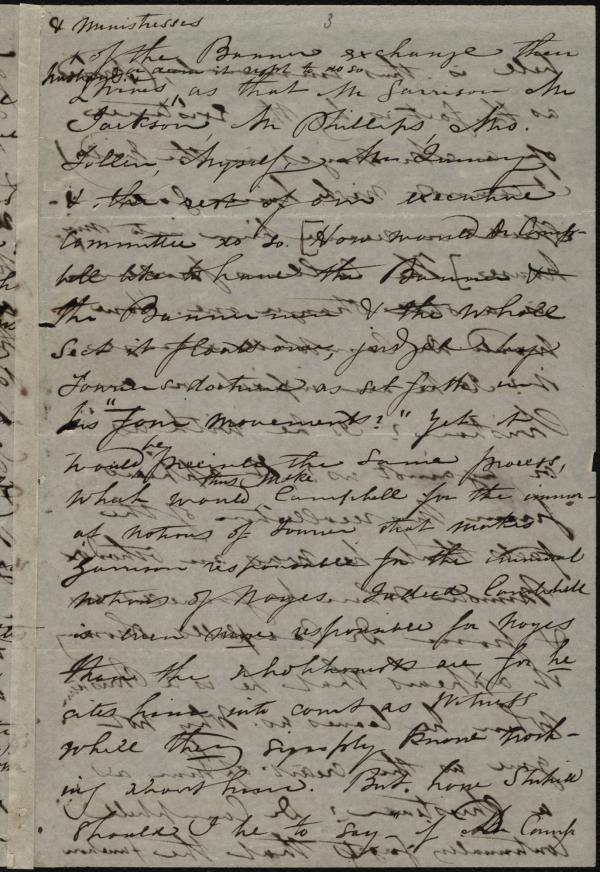 & Ministresses
3
of the Banner exchange their
husbands or deem it right to do so
& wives, as that Mr Garrison Mr
Jackson, Mr Phillips, Mrs.
Follen, Myself, Mr Quincy
& the rest of our executive
Committee do so. [How would Dr Camp-
bell like to have the Banner &
the Banner men & the whole
Sect it floats over, judged by
Fourier's doctrine as set forth in
his "Four movements?" Yet it
would be precisely the same process,
What would Campbell for the immor-
thus make
al notions of Fourier that makes
Garrison responsible for the criminal
notions of Noyes. Indeed Campbell
is even more responsible for Noyes
than the abolitionists are, for he
cites him into court as witness
while they simply know noth-
ing about him. But how
should I be to say "if Dr Camp